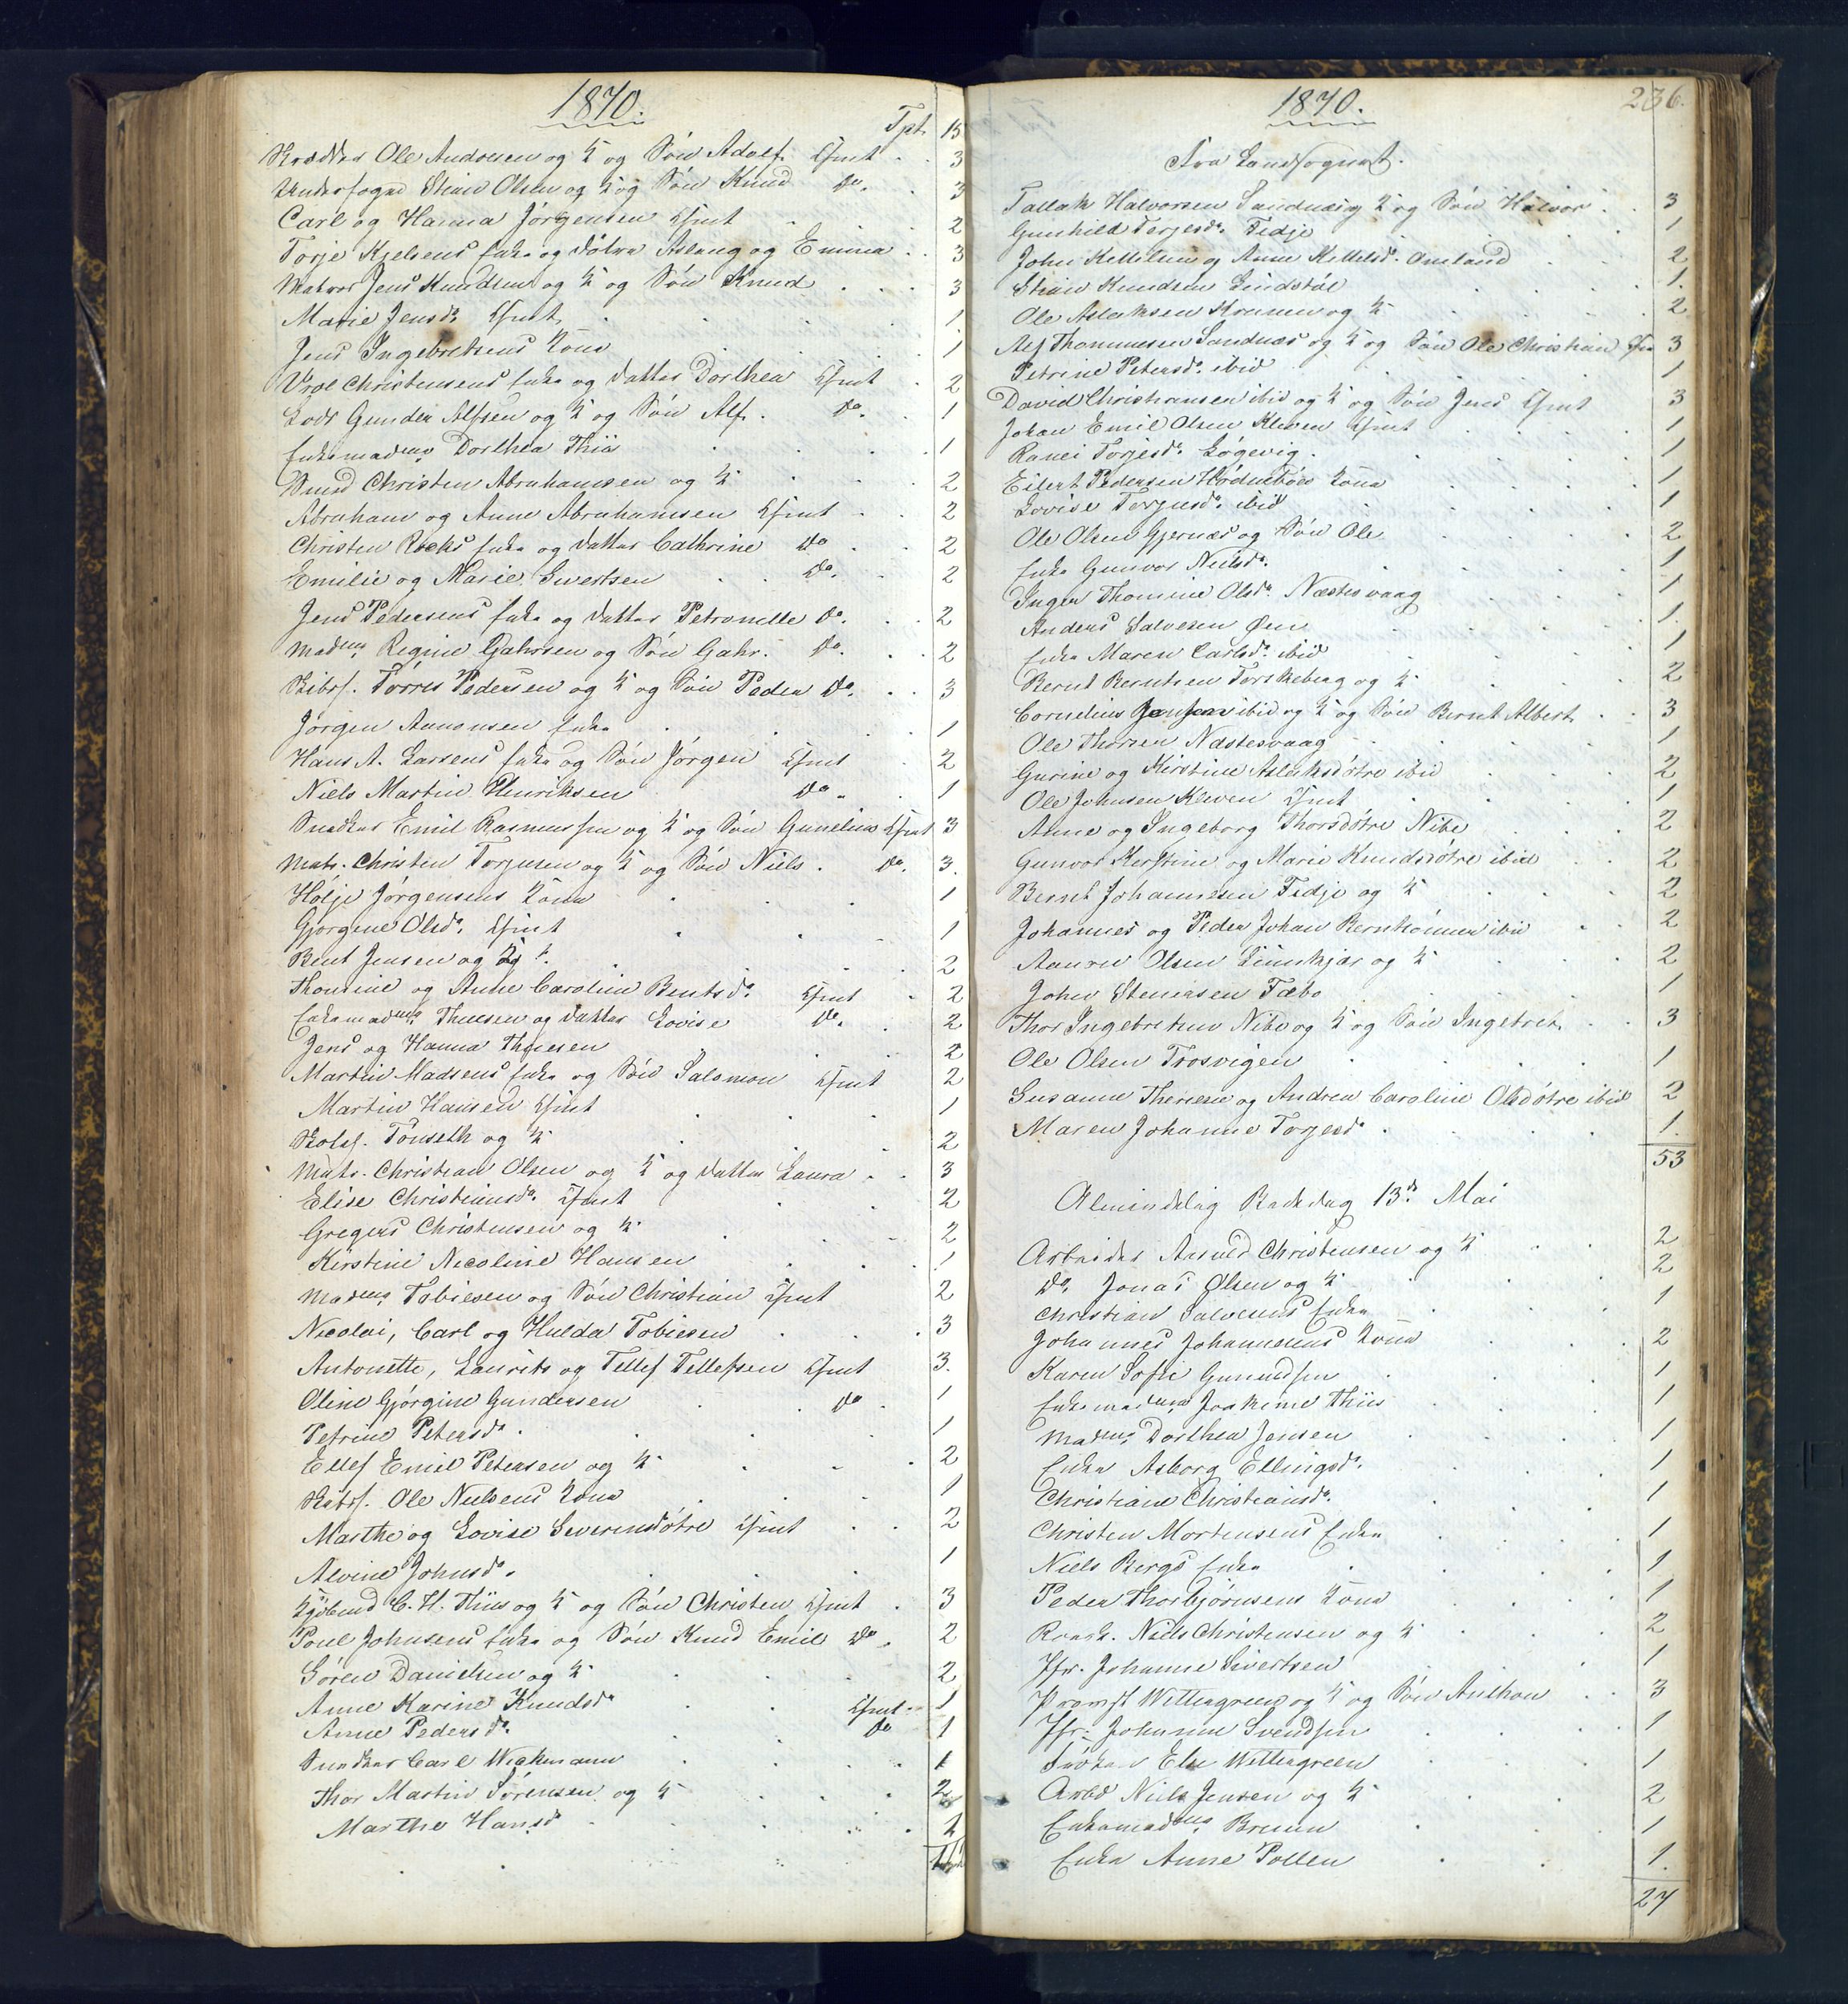 1870.
Tpt. 15
Skrædder Ole Andersen og K. og Søn Adolf Cfmt 3
Underfoged Stian Olsen og K og Søn Knud do. 3
Carl og Hanna Jørgensen Cfmt 2
Torje Kjelsens Enke og døtre Aslaug og Emma 3
Matros Jens Knudsen og K og Søn Knud 3
Marie Jensdr Cfmt 1
Jens Ingebretsens Kone 1
Uroe Christensens Enke og datter Dorthea Cfmt 2
Lods Gunder Alfsen og K og Søn Alf. do. 1
Enkemadme Dorthea Thiis 1
Smed Christen Abrahamsen og K 2
Abraham og Anne Abrahamsen Cfmt 2
Christen Roeks Enke og datter Cathrine do 2
Emilie og Marie Sivertsen do. 2
Jens Pedersens Enke og datter Petronelle do. 2
Madme Regine Gahrsen og Søn Gahr. do. 2
Skibsf. Torres Pedersen og K og Søn Peder do. 3
Jørgen Aanonsen Enke 1
Hans A. Larsens Enke og Søn Jørgen Cfmt 2
Niels Martin Henriksen do 1
Snedker Emil Rasmussen og K og Søn Gunelius Cfmt 3
Matr. Christen Torjusen og K og Søn Niels. do. 3.
Holje Jørgensens Kone 1
Gjørgine Olsdr. Cfmt 1
Bent Jensen og K. 2
Thomine og Anne Caroline Bentsdr. Cfmt 2
Enkemadme Thuesen og datter Lovise do. 2
Jens og Hanna Thuesen 2
Martin Madsens Enke og Søn Salomon Cfmt 2
Martin Hansen Cfmt 1
Skolef. Tønseth og K 2
Matr. Christian Olsen og K og datter Laura 3
Elise Christiansdr. Cfmt 2
Gregers Christensen og K 2
Kirstine Nicoline Hansen 1
Madme Tobiesen og Søn Christian Cfmt 2
Nicolai, Carl og Hulda Tobiesen 3
Antonette, Laurits og Tellef Tellefsen Cfmt 3.
Oline Gjørgine Gundersen do 1
Petrine Petersdr. 1
Ellef Emil Petersen og K 2
Skibsf. Ole Nielsens Kone 1
Marthe og Lovise Severinsdøtre Cfmt 2
Alvine Johnsdr. 1
Kjøbmd C. H. Thiis og K og Søn Christen Cfmt 3
Poul Johnsens Enke og Søn Knud Emil do. 2
Søren Danielsen og K 2
Anne Karine Knudsdr Cfmt 1
Anne Pedersdr. do 1
Snedker Carl Wickmann 1
Thor Martin Sørensen og K 2
Marthe Hansdr 1
1870.
236.
Fra Landsognet.
Tallak Halvorsen Sandnæs og K og Søn Halvor 3
Gunhild Terjesdr. Tedje 1
John Kettelsen og Anne Kettelsdr. Omland 2
Stian Knudsen Lindstøl 1.
Ole Aslaksen Kronen og K 2
Alf Thommesen Sandnæs og K og Søn Ole Christian Cfm 3
Petrine Petersdr. ibid 1
David Christiansen ibid og K og Søn Jens Cfmt 3
Johan Emil Olsen Kleven Cfmt 1
Ranei Torjesdr. Løgevig. 1
Eilert Pedersen Hødnebøes Kone 1
Lovise Torjusdr. ibid 1
Ole Olsen Gjernæs og Søn Ole 2
Enke Gunvor Nielsdr. 1
Inger Thomine Olsdr. Næstesvaag 1
Anders Salvesen Øen 1.
Enke Maren Carlsdr. ibid 1
Bernt Berntsen Torskeberg og K 2
Cornelius Jensen ibid og K og Søn Bernt Albert 3
Ole Thorsen Næstesvaag 1
Gurine og Kirstine Aslaksdøtre ibid 2
Ole Johnsen Kleven Cfmt 1
Anne og Ingeborg Thorsdøtre Nibe 2
Gunvor Kerstine og Marie Knudsdøtre ibid 2
Bernt Johannesen Tedje og K 2
Johannes og Peder Johan Berntsønner ibid 2
Aanon Olsen Lunnkjær og K 2
John Stenersen Tæbo 1
Thor Ingebretsen Nibe og K og Søn Ingebret. 3
Ole Olsen Trosvigen 1
Susanne Therese og Andrea Caroline Olsdøtre ibid 2
Maren Johanne Torjesdr 1.
53
Almindelig Bededag 13de Mai
Arbeider Arnuld Christensen og K 2
do. Jonas Olsen og K 2
Christian Salvesens Enke 1
Johannes Johannesens Kone 2
Karen Sofie Gunuldsen 1
Enkemadme Joakime Thiis 1
Madme Dorthea Jensen 1
Enke Asborg Ellingsdr. 1
Christiane Christiansdr. 1
Christen Mortensens Enke 1
Niels Bergs Enke 1
Peder Thorbjørnsens Kone 1
Niels Christensen og K 2
Jfr. Johanne Sivertsen 1
Provst Wettergreen og K og Søn Anthon 3
Jfr. Johanne Svendsen 1
Frøken Else Wettergreen 1
Arbd Niels Jensen og K 2
Enkemadme Bruun 1
Enke Anne Pollen 1.
27